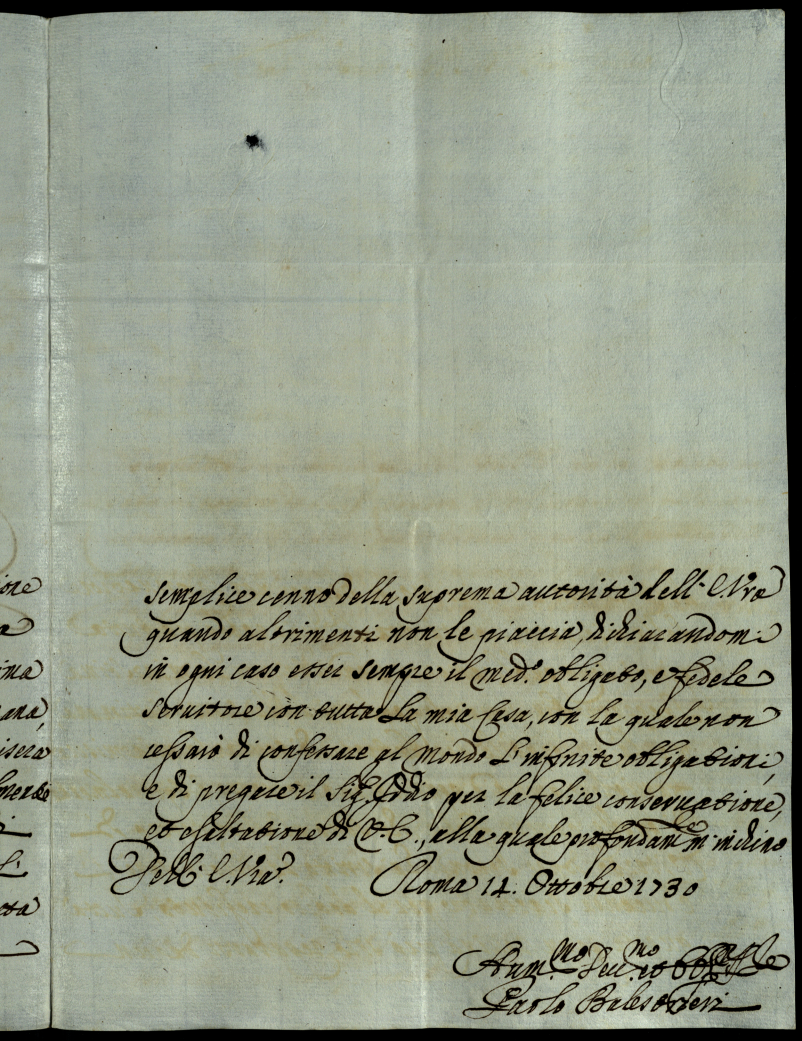 ione
a
ima
ana,
isera
mente
semplice cenno della suprema autorità dell'E. Vra
quando altrimenti non le piaccia, dichiarandomi
in ogni caso esser sempre il med.º obligato, e fedele
servitore con tutta La mia Casa, con la quale non
cessarò di confessare al Mondo L'infinite obligationi,
e di pregare il Sig.r Iddio per la felice conservatione,
et esaltatione di V. E., alla quale profondam.te m'inchino
Dell'E. Vra. Roma 14. Ottobre 1730
Hum.mo Dev.mo et Obl.
Paolo Balestrieri